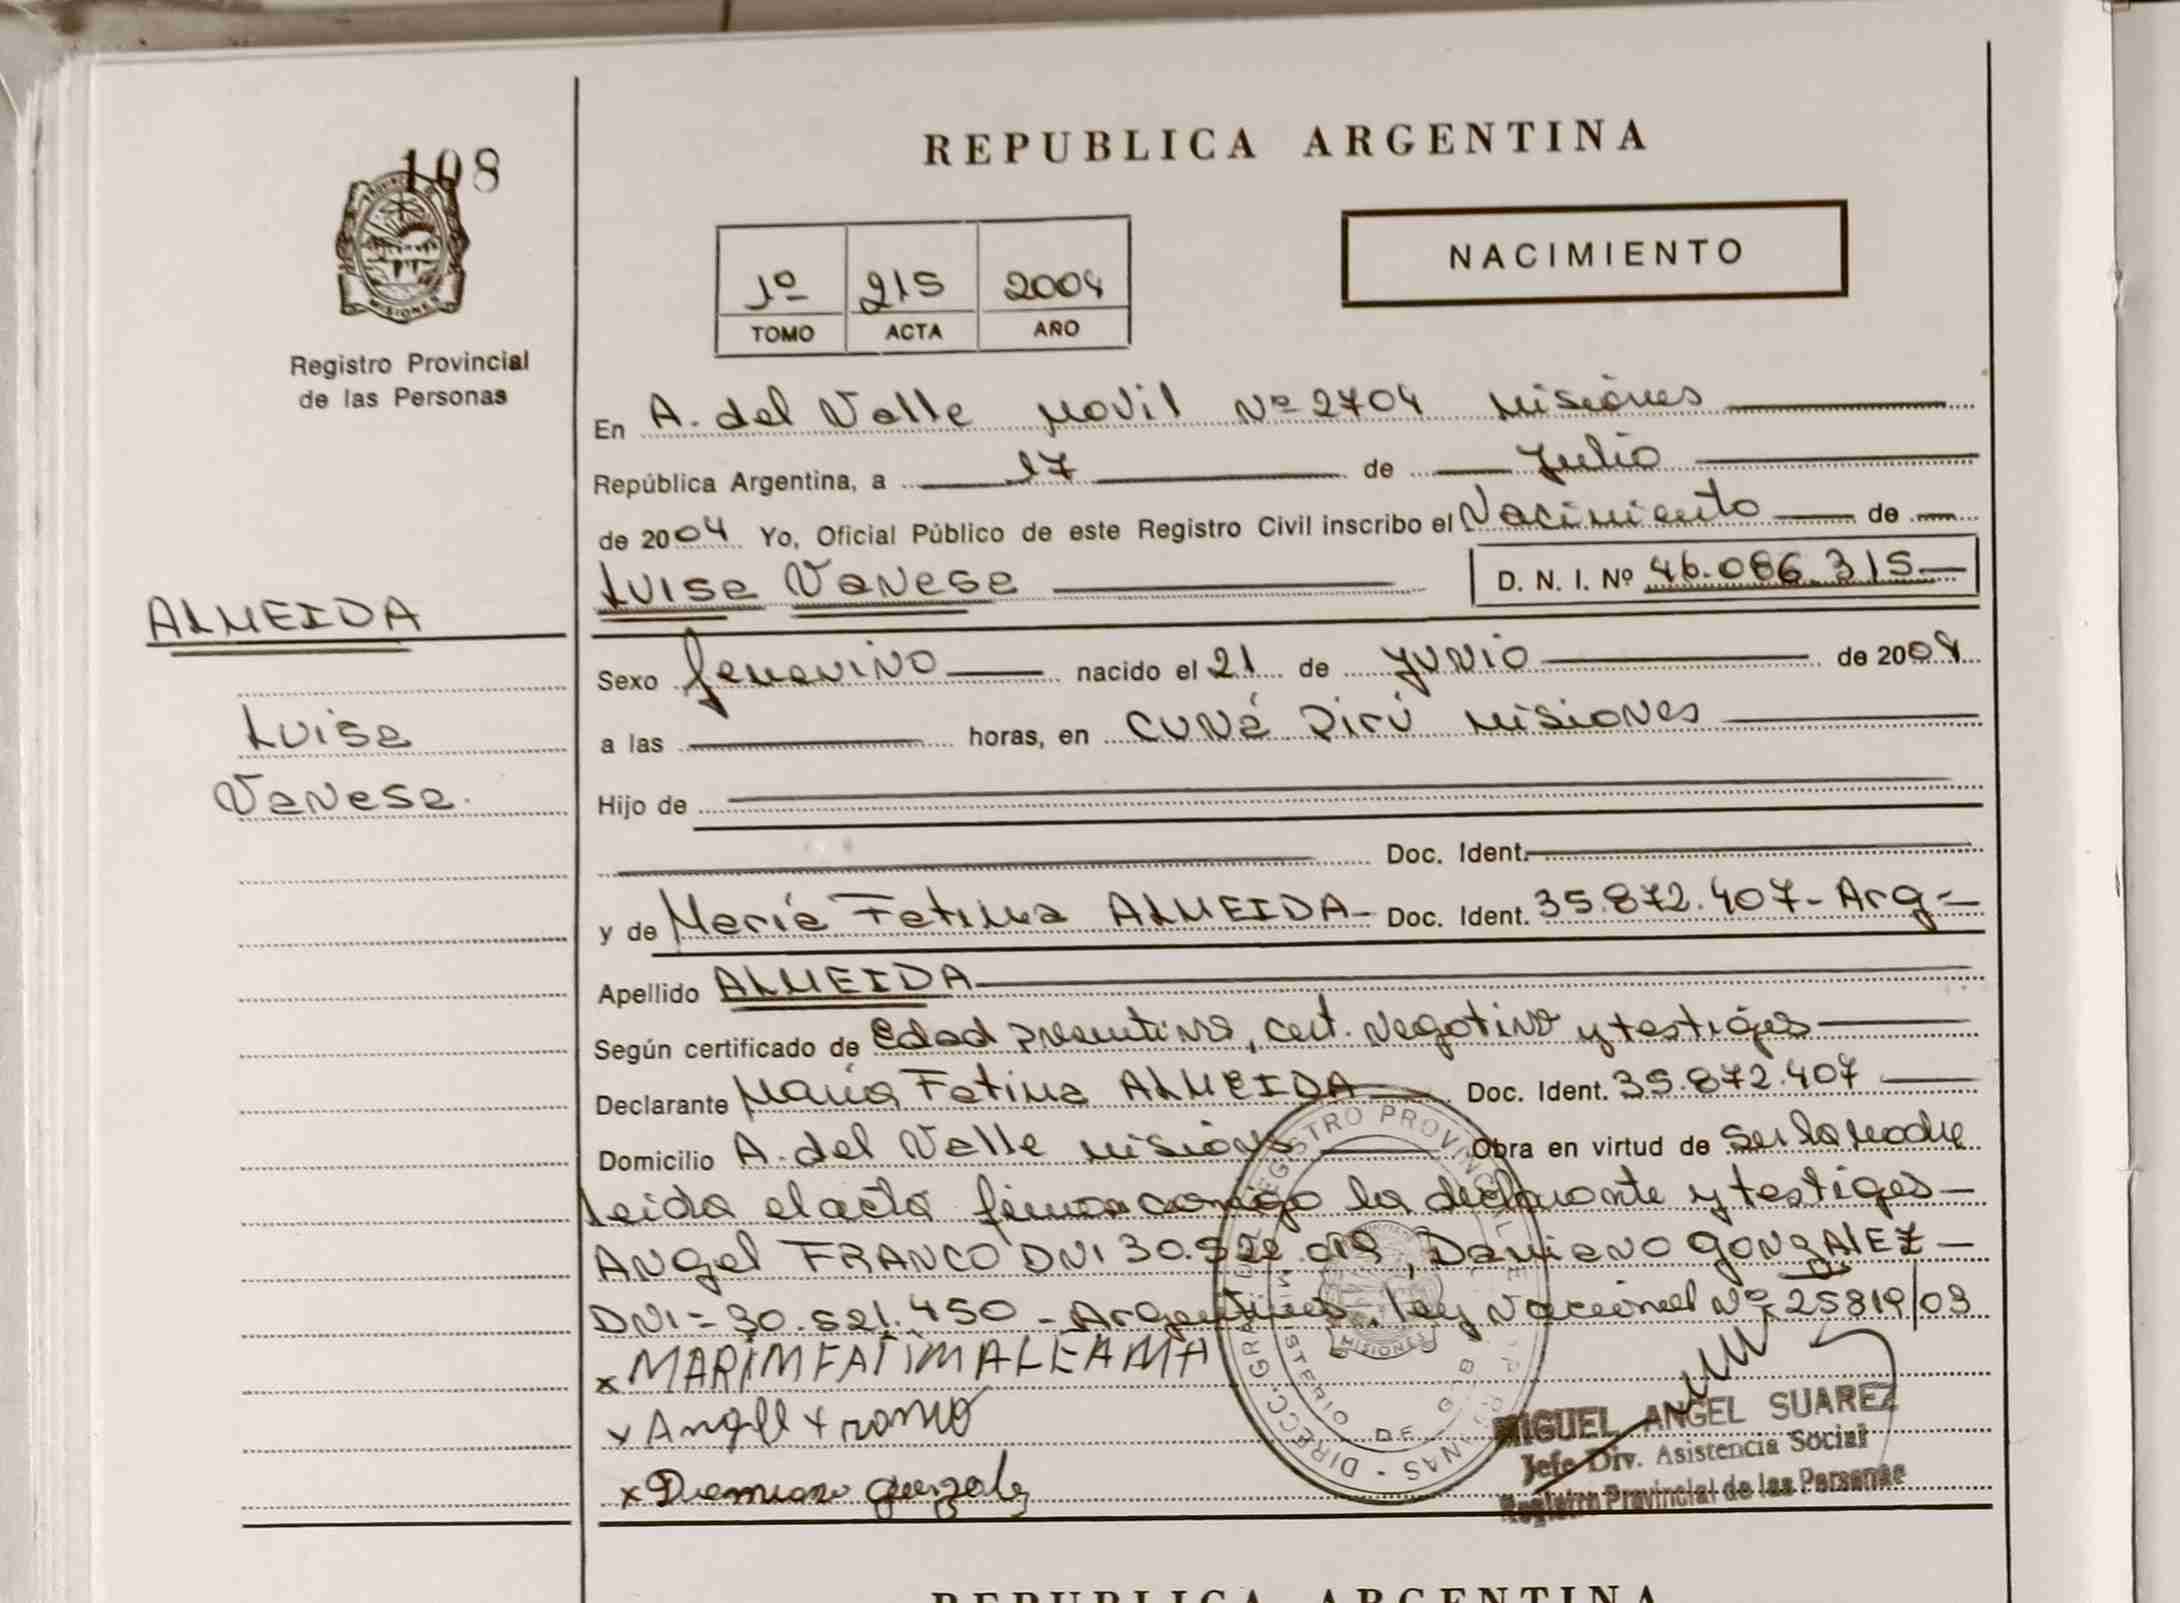 108
PROVINCIA
MISIONES
Registro Provincial
de las Personas
ALMEIDA
Luisa
Vanesa.
REPUBLICA ARGENTINA
1º 215 2004
TOMO ACTA AÑO
NACIMIENTO
En A. del Valle Movil Nº 2704 Misiones
República Argentina, a 17 de Julio
de 2004 Yo, Oficial Público de este Registro Civil inscribo el Nacimiento de
Luisa Vanesa D. N. I. Nº 46.086.315
Sexo femenino nacido el 21 de junio de 2004
a las horas, en Cuñá Pirú Misiones
Hijo de
Doc. Ident.
y de María Fatima ALMEIDA- Doc. Ident. 35.872.407- Arg-
Apellido ALMEIDA
Según certificado de Edad presuntiva, cert. negativo y testigos
Declarante María Fatima ALMEIDA Doc. Ident. 35.872.407
Domicilio A. del Valle Misiones Obra en virtud de ser la madre
Leida el acta firma conmigo la declarante y testigos-
Angel FRANCO DNI 30.522 Damiano GONZALEZ-
DNI= 30.521.450 - Argentinos, ley Nacional Nº 25819/03
x MARIMFATIMALEAMA
x Angel Franco
x Damiano gonzalez
REGISTRO PROVINCIAL DE LAS PERSONAS - DIRECC. GRAL.
MINISTERIO DE GOB.
MISIONES
MIGUEL ANGEL SUAREZ
Jefe Div. Asistencia Social
Registro Provincial de las Personas
REPUBLICA ARGENTINA